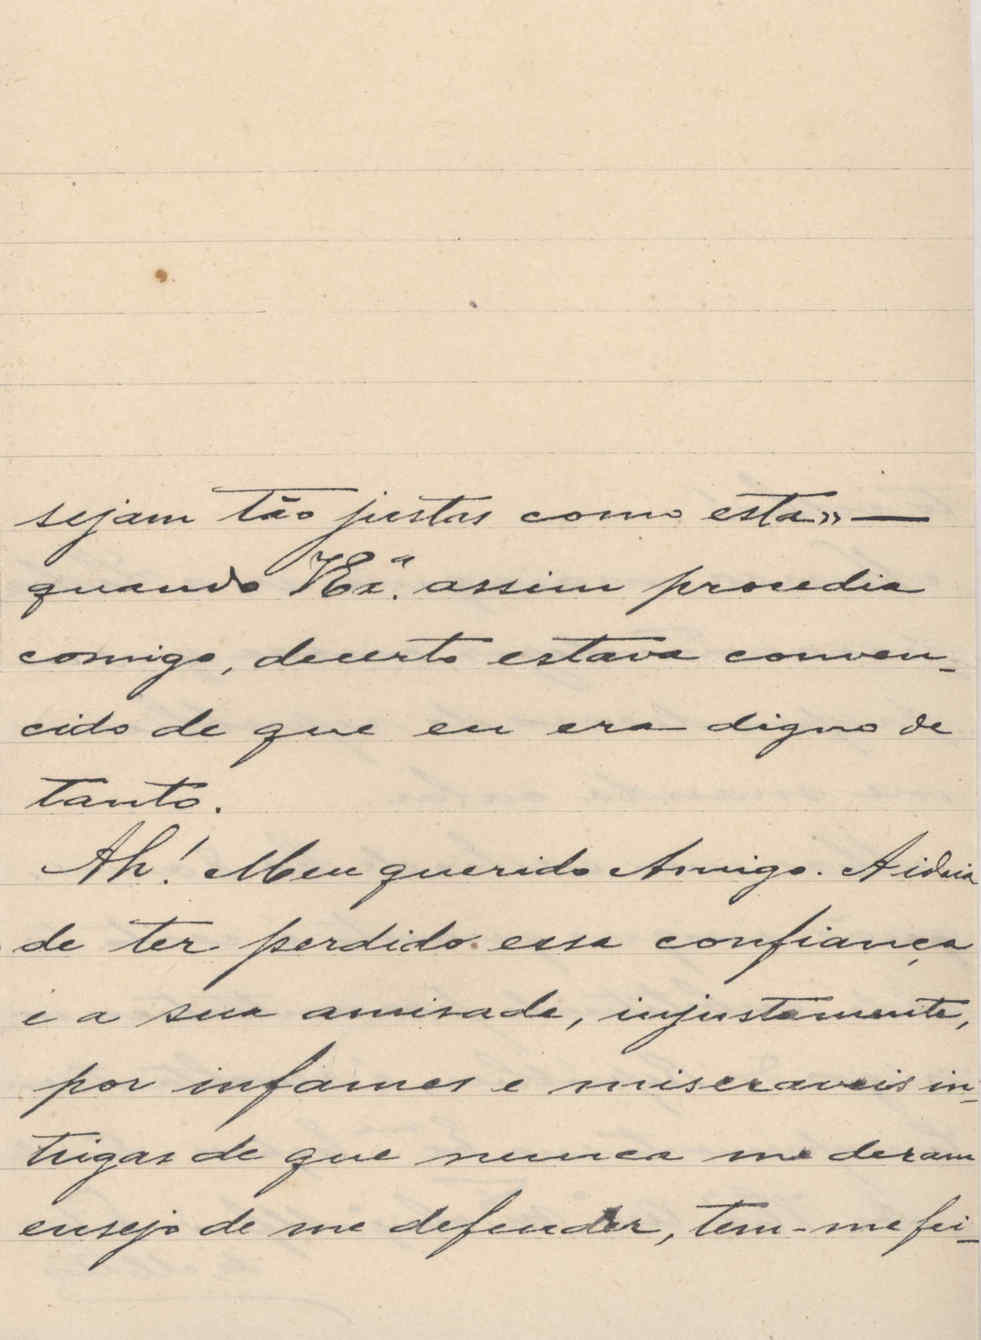 sejam tão justas como esta» —
quando VExª. assim procedia
comigo, decerto estava conven-
cido de que eu era digno de
tanto.
Ah! Meu querido Amigo. A ideia
de ter perdido essa confiança
e a sua amisade, injustamente,
por infames e miseraveis in-
trigas de que nunca me deram
ensejo de me defender, tem-me fei-